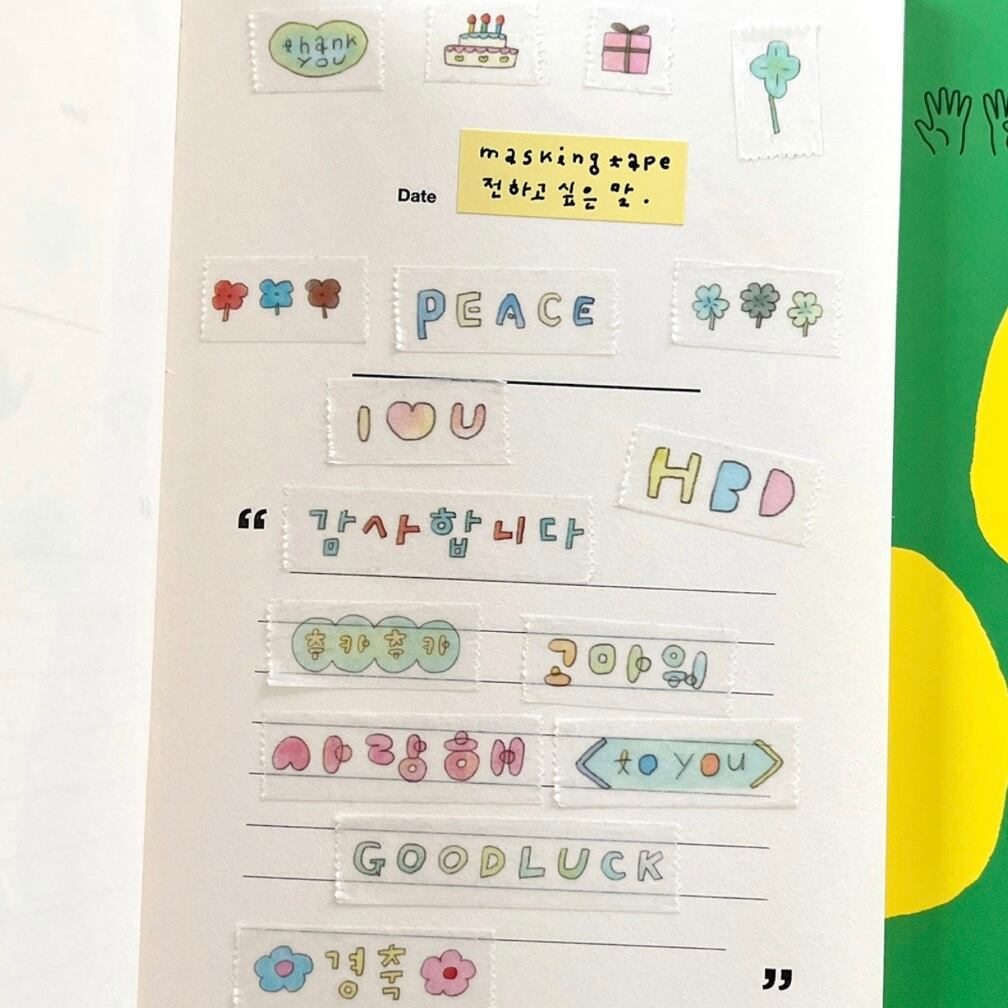 thank
you
masking tape
전하고 싶은 말.
Date
PEACE
I ♥ U
HBD
“
감사합니다
축카축카
고마워
사랑해
<to you>
GOODLUCK
경축
”